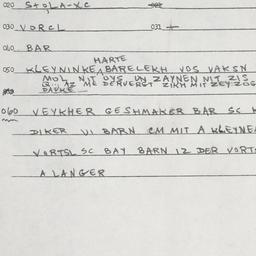 020 STOLA-XC
030 VORCL 031 +
040 BAR
HARTE
050 KLEYNINKE, BARELEKH VOS VAKSN
MOL NIT OYS UN ZAYNEN NIT ZIS
AZ ME DERVERGT ZIKH MIT ZEY ZOG
DAVKE
060 VEYKHER GESHMAKER BAR SC
DIKER VI BARN CM MIT A KLEYNE
VORTSL SC BAY BARN IZ DER VORTS
A LANGER